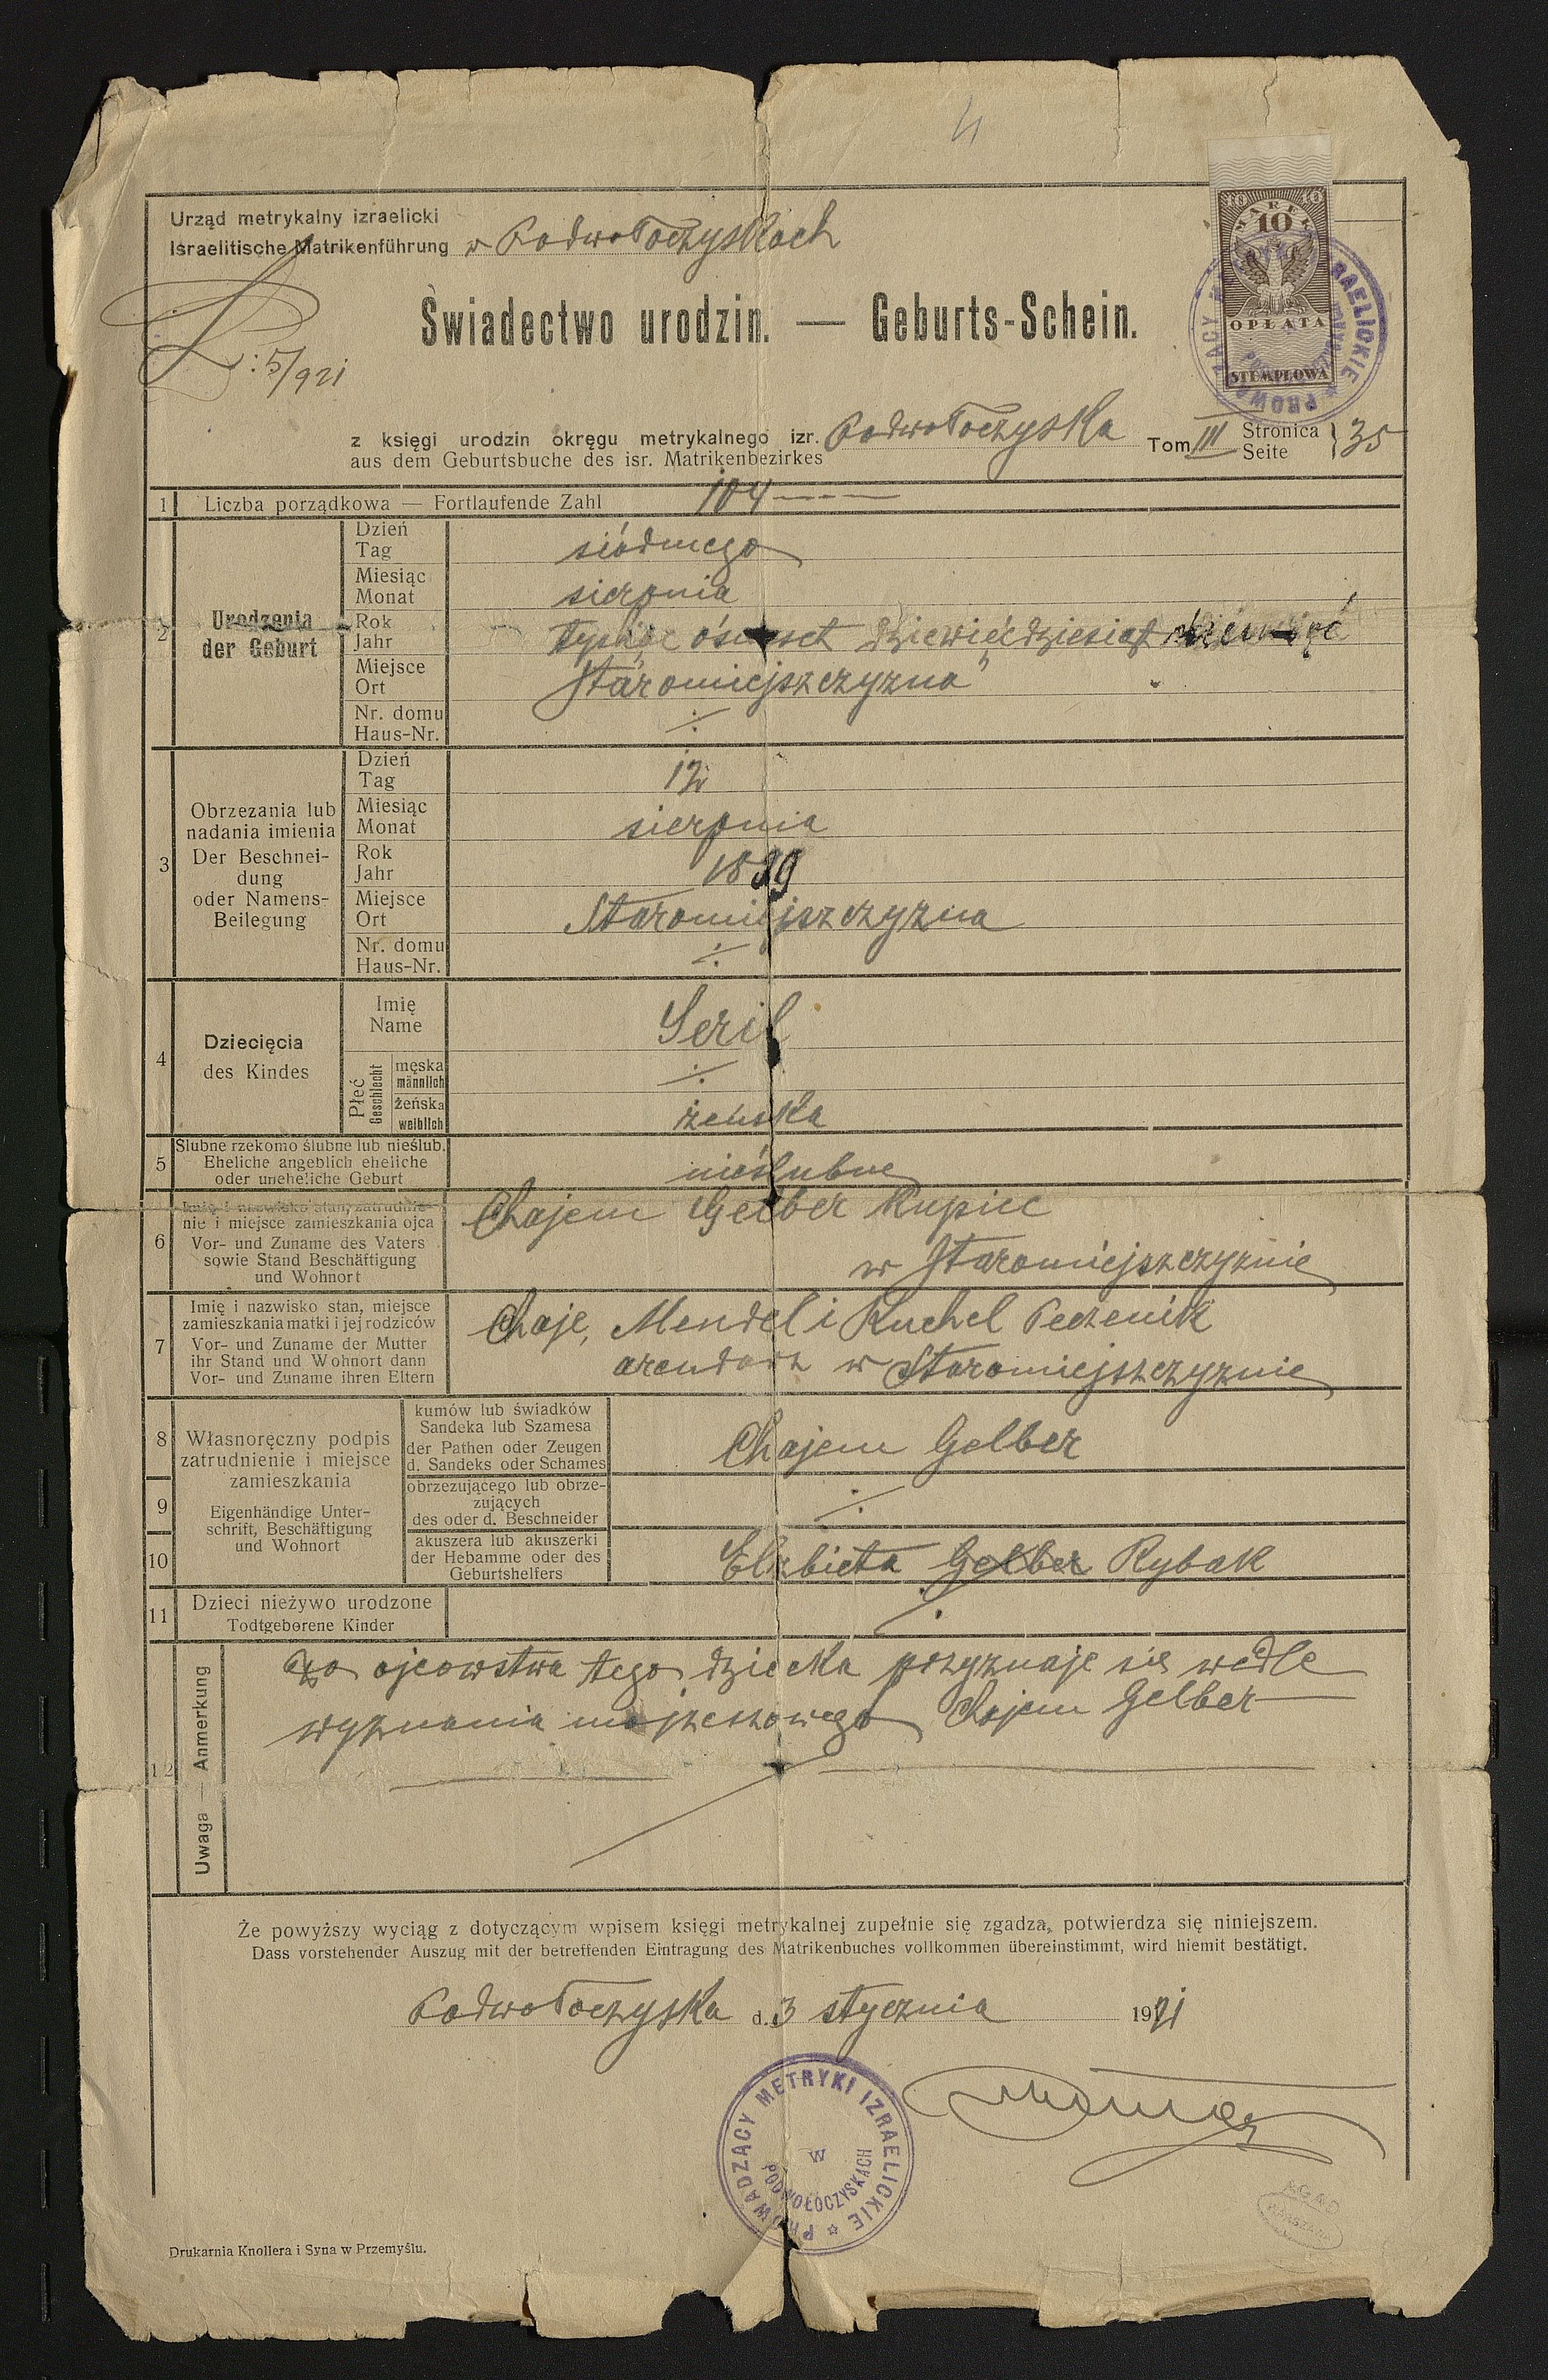 4
Urząd metrykalny izraelicki
Israelitische Matrikenführung w Podwołoczyskach
MAREK
10 10 10
OPŁATA
STEMPLOWA
PROWADZĄCY METRYKI IZRAELICKIE
Świadectwo urodzin. — Geburts-Schein.
L: 5/921
z księgi urodzin okręgu metrykalnego izr.
aus dem Geburtsbuche des isr. Matrikenbezirkes Podwołoczyska Tom III Stronica Seite 35
1 Liczba porządkowa — Fortlaufende Zahl 104
2 Urodzenia
der Geburt
Dzień
Tag siódmego
Miesiąc
Monat sierpnia
Rok
Jahr tysiąc ośmset dziewięćdziesiąt dziewięć
Miejsce
Ort Staromiejszczyzna
Nr. domu
Haus-Nr. ÷
3 Obrzezania lub
nadania imienia
Der Beschnei-
dung
oder Namens-
Beilegung
Dzień
Tag 12
Miesiąc
Monat sierpnia
Rok
Jahr 1899
Miejsce
Ort Staromiejszczyzna
Nr. domu
Haus-Nr. ÷
4 Dziecięcia
des Kindes
Imię
Name Seril
Płeć
Geschlecht
męska
männlich ÷
żeńska
weiblich żeńska
5 Ślubne rzekomo ślubne lub nieślub.
Eheliche angeblich eheliche
oder uneheliche Geburt nieślubne
6 Imię i nazwisko stan, zatrudnie-
nie i miejsce zamieszkania ojca
Vor- und Zuname des Vaters
sowie Stand Beschäftigung
und Wohnort
Chajem Gelber kupiec
w Staromiejszczyznie
7 Imię i nazwisko stan, miejsce
zamieszkania matki i jej rodziców
Vor- und Zuname der Mutter
ihr Stand und Wohnort dann
Vor- und Zuname ihren Eltern
Chaje, Mendel i Ruchel Peczenik
arendarz w Staromiejszczyznie
Własnoręczny podpis
zatrudnienie i miejsce
zamieszkania
Eigenhändige Unter-
schrift, Beschäftigung
und Wohnort
8 kumów lub świadków
Sandeka lub Szamesa
der Pathen oder Zeugen
d. Sandeks oder Schames
Chajem Gelber
9 obrzezującego lub obrze-
zujących
des oder d. Beschneider
÷
10 akuszera lub akuszerki
der Hebamme oder des
Geburtshelfers
Elzbieta Gelber Rybak
11 Dzieci nieżywo urodzone
Todtgeborene Kinder ÷
12 Uwaga — Anmerkung
Do ojcowstwa tego dziecka przyznaje się wedle
wyznania mojżeszowego Chajem Gelber
Że powyższy wyciąg z dotyczącym wpisem księgi metrykalnej zupełnie się zgadza, potwierdza się niniejszem.
Dass vorstehender Auszug mit der betreffenden Eintragung des Matrikenbuches vollkommen übereinstimmt, wird hiemit bestätigt.
Podwołoczyska d. 3 stycznia 1921
PROWADZĄCY METRYKI IZRAELICKIE
W
PODWOŁOCZYSKACH
AGAD
WARSZAWA
Drukarnia Knollera i Syna w Przemyślu.